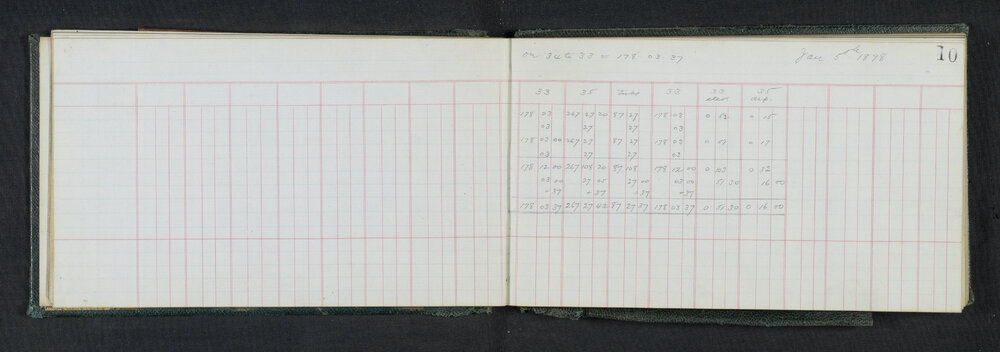 on 34 to 33 = 178 03 37 Jan 5th 1898 10
33 35 33 33 35
elev. dep.
178 03 267 27 20 87 27 178 03 0 52 0 15
03 27 27 03
178 03 00 267 27 87 27 178 03 0 51 0 17
03 27 27 03
178 12 00 267 108 20 87 108 178 12 00 0 103 0 32
03 00 27 05 27 00 03 00 51 30 16 00
+37 +37 +37 +37
178 03 37 267 27 42 87 27 37 178 03 37 0 51 30 0 16 00